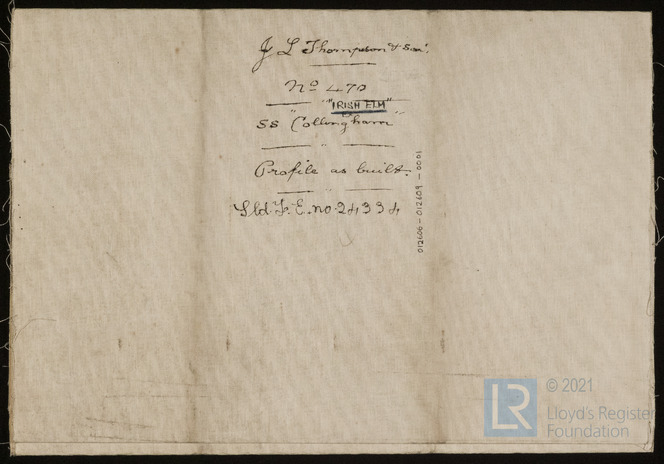 J L Thompson & Sons.
No 470
"IRISH ELM"
SS "Collingham"
Profile as built.
Sld. F. E. no. 24334
012606-012609-0001
© 2021
LR
Lloyd's Register
Foundation